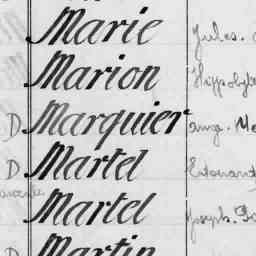 Marie Jules.
Marion Hippolyte
D Marquier ang.
D Martel Edouard
Martel Joseph.
D Martin